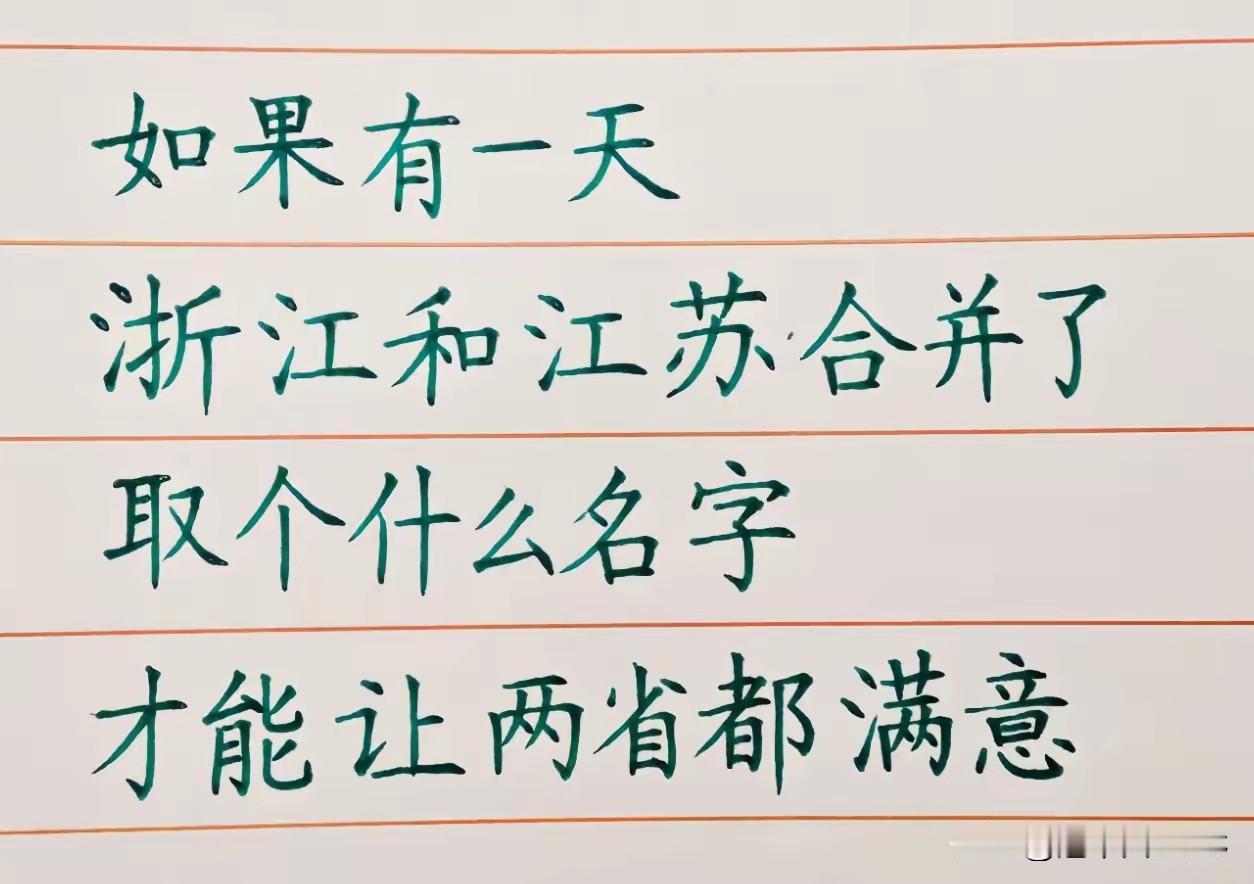 如果有一天
浙江和江苏合并了
取个什么名字
才能让两省都满意